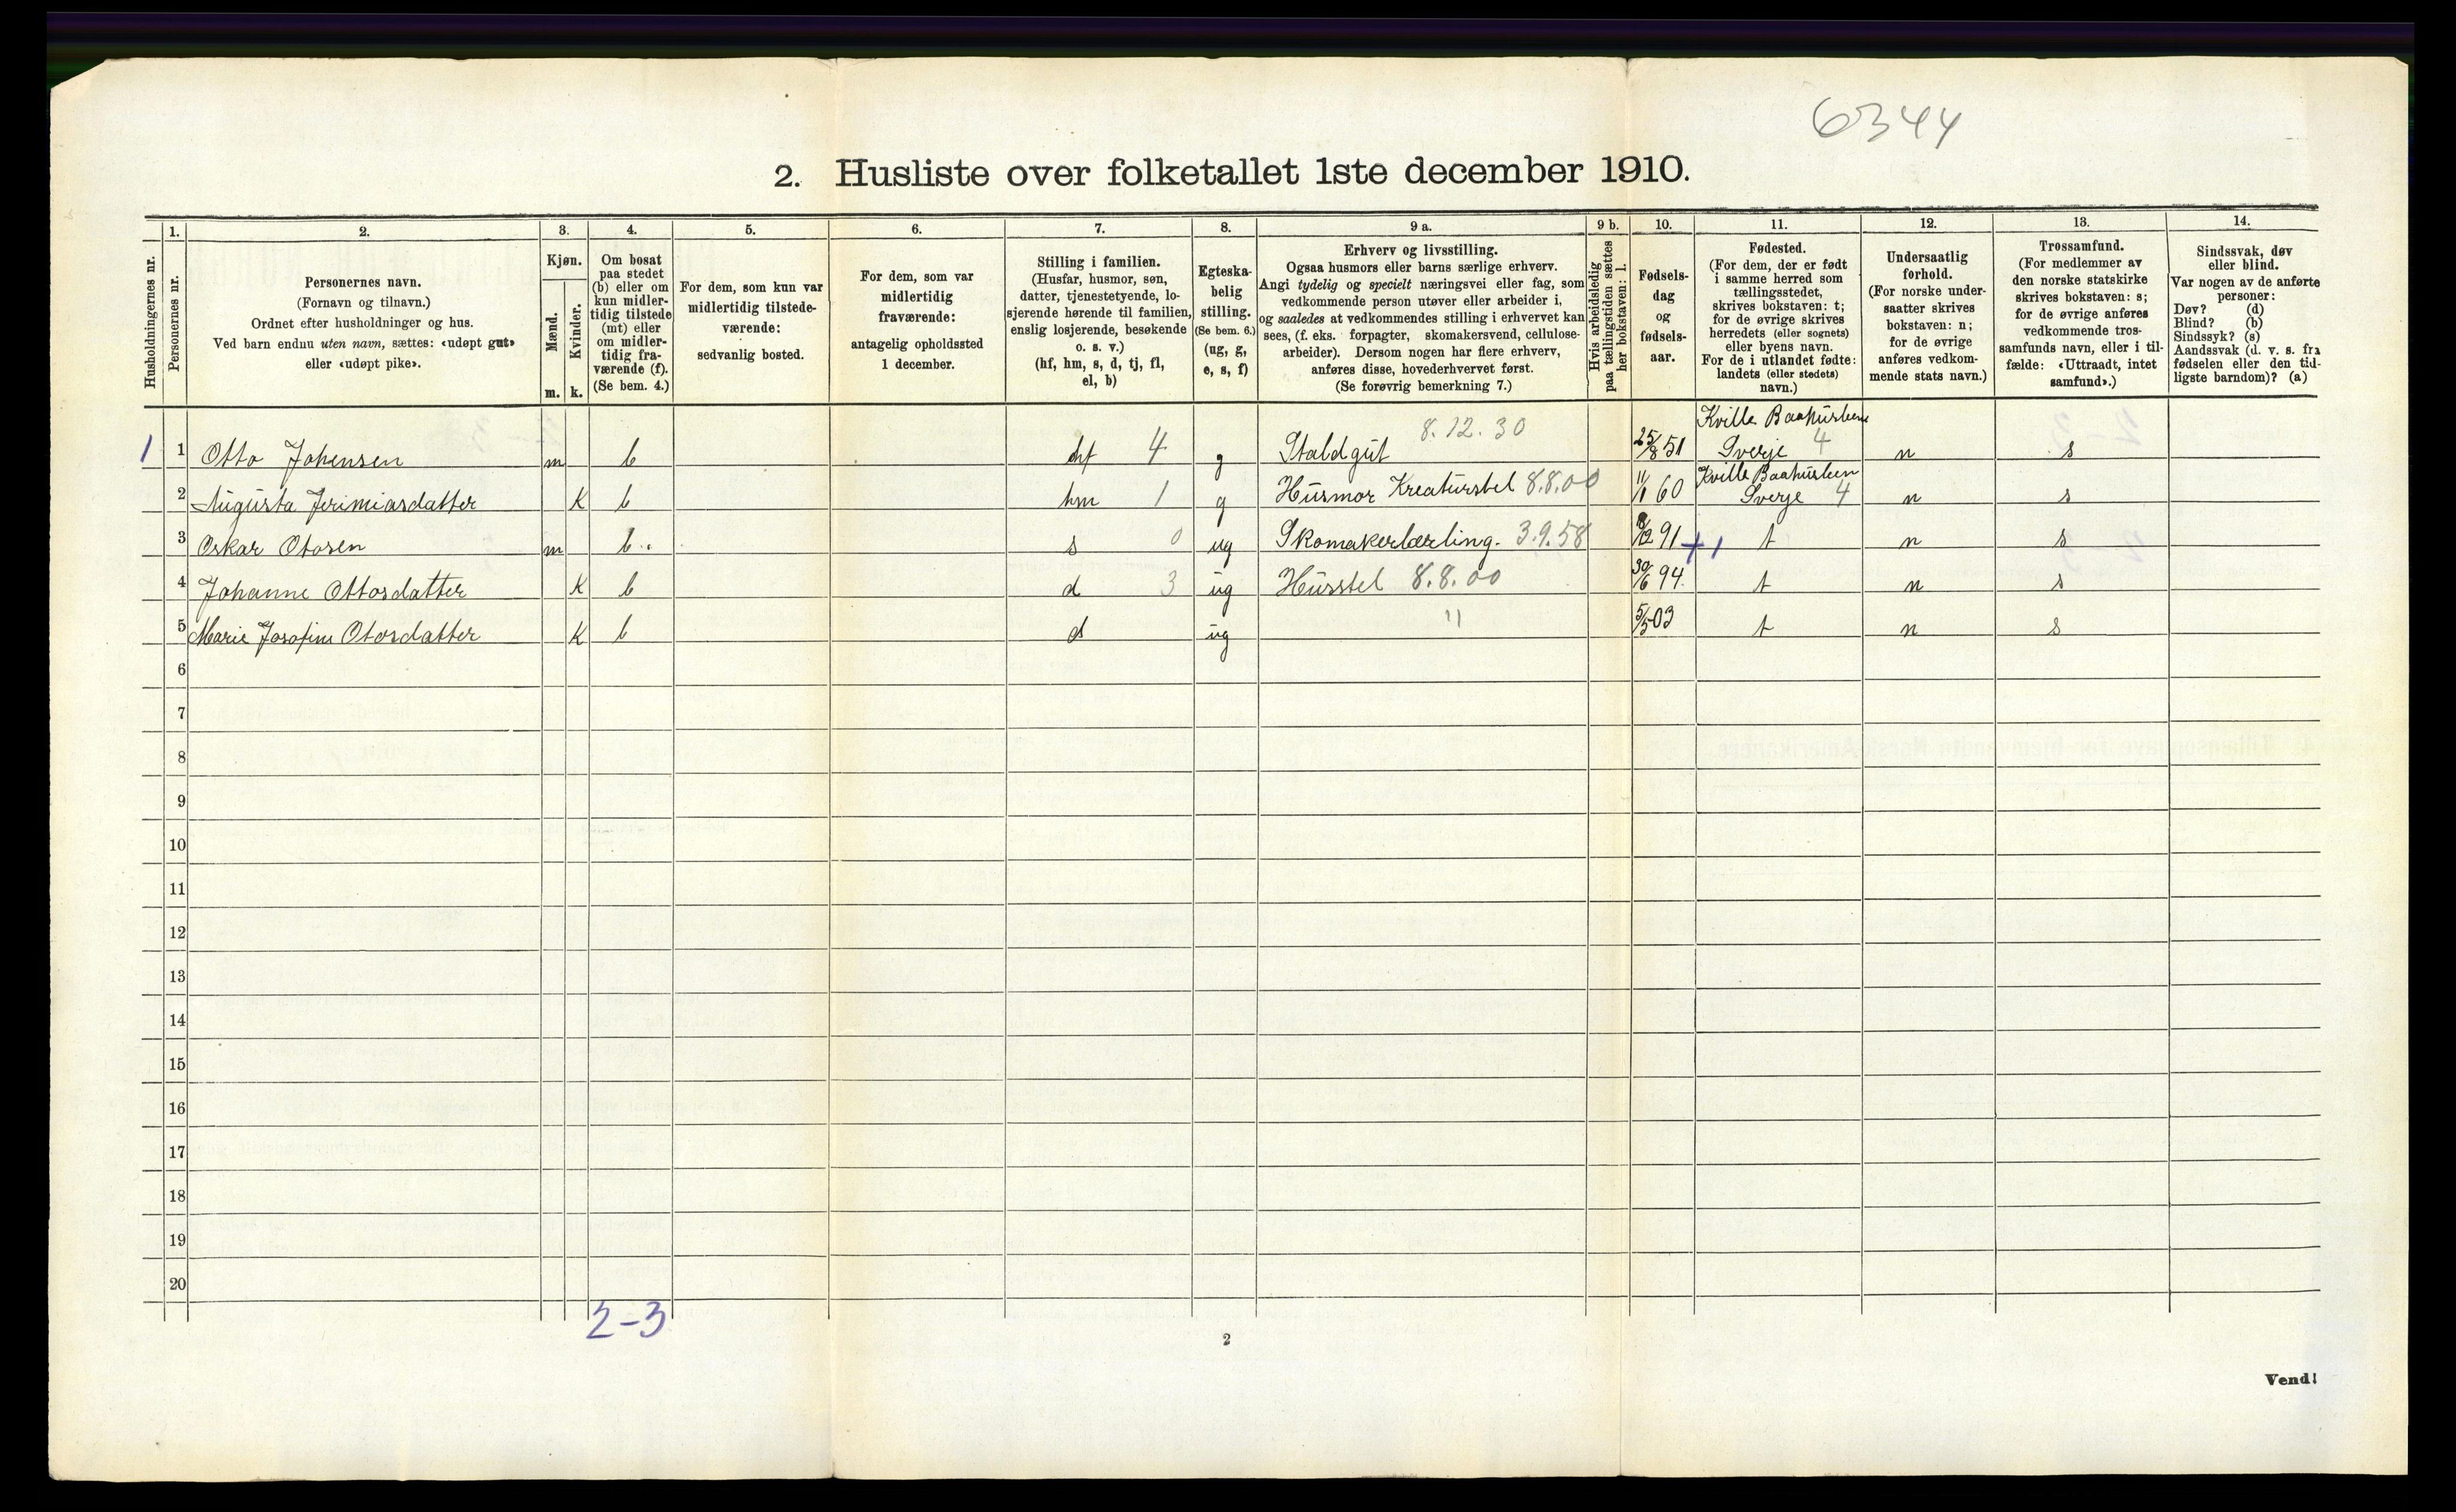 6344
2. Husliste over folketallet 1ste december 1910.
Husholdningernes nr.
1.
Personernes nr.
2.
Personernes navn.
(Fornavn og tilnavn.)
Ordnet efter husholdninger og hus.
Ved barn endnu uten navn, sættes: «udøpt gut»
eller «udøpt pike».
3.
Kjøn.
Mænd.
m.
Kvinder.
k.
4.
Om bosat
paa stedet
(b) eller om
kun midler-
tidig tilstede
(mt) eller
om midler-
tidig fra-
værende (f).
(Se bem. 4.)
5.
For dem, som kun var
midlertidig tilstede-
værende:
sedvanlig bosted.
6.
For dem, som var
midlertidig
fraværende:
antagelig opholdssted
1 december.
7.
Stilling i familien.
(Husfar, husmor, søn,
datter, tjenestetyende, lo-
sjerende hørende til familien,
enslig losjerende, besøkende
o. s. v.)
(hf, hm, s, d, tj, fl,
el, b)
8.
Egteska-
belig
stilling.
(Se bem. 6.)
(ug, g,
e, s, f)
9 a.
Erhverv og livsstilling.
Ogsaa husmors eller barns særlige erhverv.
Angi tydelig og specielt næringsvei eller fag, som
vedkommende person utøver eller arbeider i,
og saaledes at vedkommendes stilling i erhvervet kan
sees, (f. eks. forpagter, skomakersvend, cellulose-
arbeider). Dersom nogen har flere erhverv,
anføres disse, hovederhvervet først.
(Se forøvrig bemerkning 7.)
9 b.
Hvis arbeidsledig
paa tællingstiden sættes
her bokstaven: l.
10.
Fødsels-
dag
og
fødsels-
aar.
11.
Fødested.
(For dem, der er født
i samme herred som
tællingsstedet,
skrives bokstaven: t;
for de øvrige skrives
herredets (eller sognets)
eller byens navn.
For de i utlandet fødte:
landets (eller stedets)
navn.)
12.
Undersaatlig
forhold.
(For norske under-
saatter skrives
bokstaven: n;
for de øvrige
anføres vedkom-
mende stats navn.)
13.
Trossamfund.
(For medlemmer av
den norske statskirke
skrives bokstaven: s;
for de øvrige anføres
vedkommende tros-
samfunds navn, eller i til-
fælde: «Uttraadt, intet
samfund».)
14.
Sindssvak, døv
eller blind.
Var nogen av de anførte
personer:
Døv? (d)
Blind? (b)
Sindssyk? (s)
Aandssvak (d. v. s. fra
fødselen eller den tid-
ligste barndom)? (a)
1 1 Otto Johensen m b hf 4 g Staldgut 8.12.30 25/8 51 Kville Baahuslen Sverje 4 n s
2 Augusta Jerimiasdatter K b hm 1 g Husmor Kreaturstel 8.8.00 11/1 60 Kville Baahuslen Sverje 4 n s
3 Oskar Otosen m b s 0 ug Skomakerlærling. 3.9.58 8/12 91 +1 t n s
4 Johanne Ottosdatter K b d 3 ug Husstel 8.8.00 30/6 94. t n s
5 Marie Josofine Otosdatter K b d ug " 5/5 03 t n s
6
7
8
9
10
11
12
13
14
15
16
17
18
19
20
2-3
2
Vend!